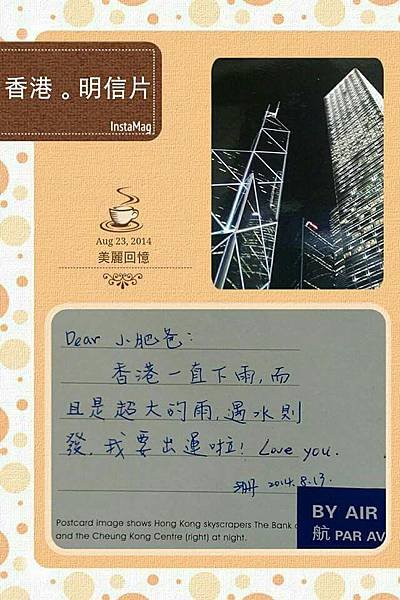 香港。明信片
InstaMag
Aug 23, 2014
美麗回憶
Dear 小肥爸:
香港一直下雨,而
且是超大的雨,遇水則
發,我要出運啦! Love you.
珊 2014.8.13.
Postcard image shows Hong Kong skyscrapers The Bank
and the Cheung Kong Centre (right) at night.
BY AIR
航 PAR AV